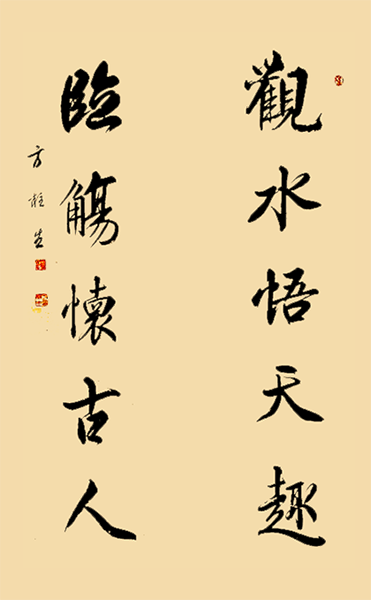 觀水悟天趣
臨觴懷古人
方雄生